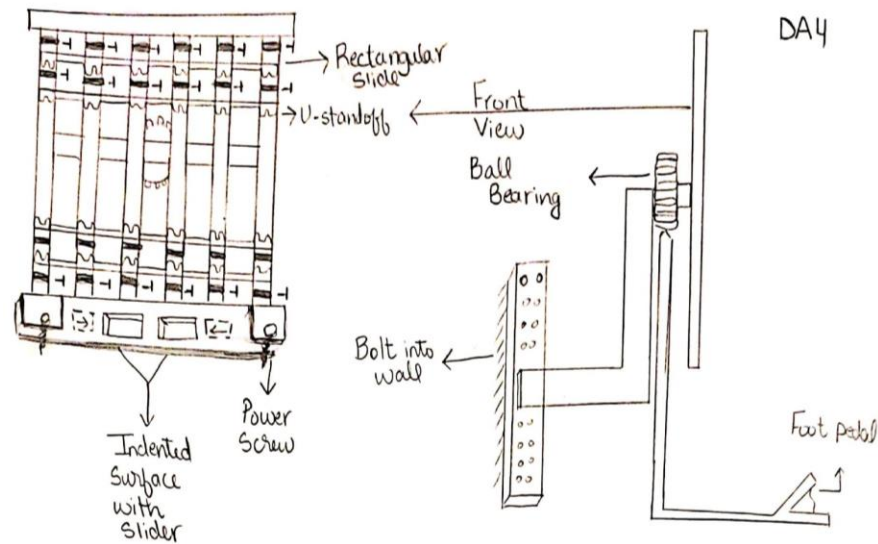 DA4
Rectangular
Slide
U-standoff
Front
View
Ball
Bearing
Bolt into
wall
Foot pedal
Power
Screw
Indented
Surface
with
Slider